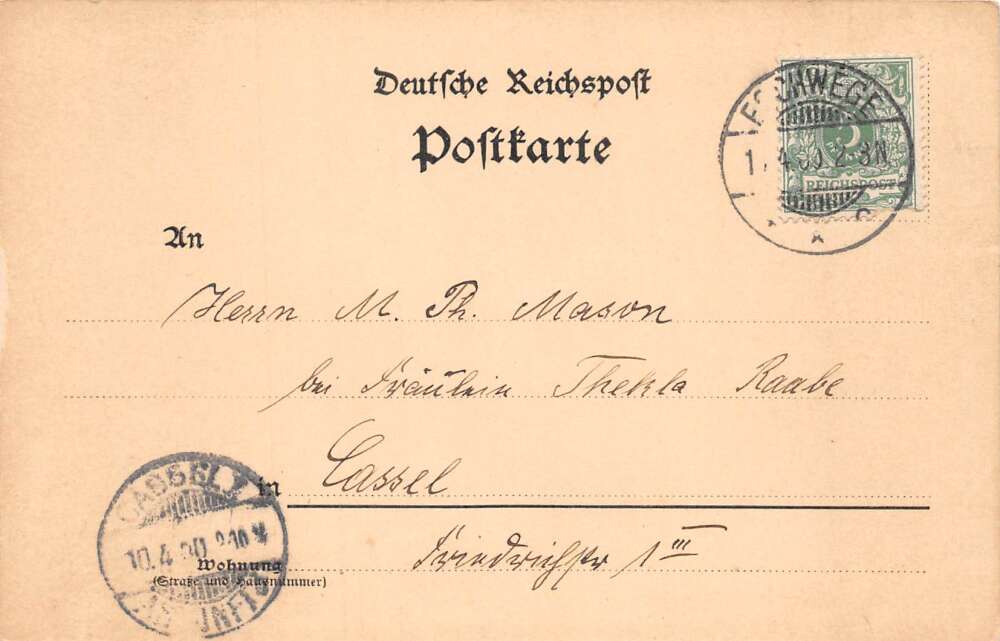 Deutsche Reichspost
Postkarte
ESCHWEGE
2-3N
5
REICHSPOST
An
Herrn M. Th. Mason
bei Fräulein Thekla Raabe
in Cassel
Friedrichstr 1 III
Wohnung
(Straße und Hausnummer)
CASSEL 1
10.4.00. 9-10 V